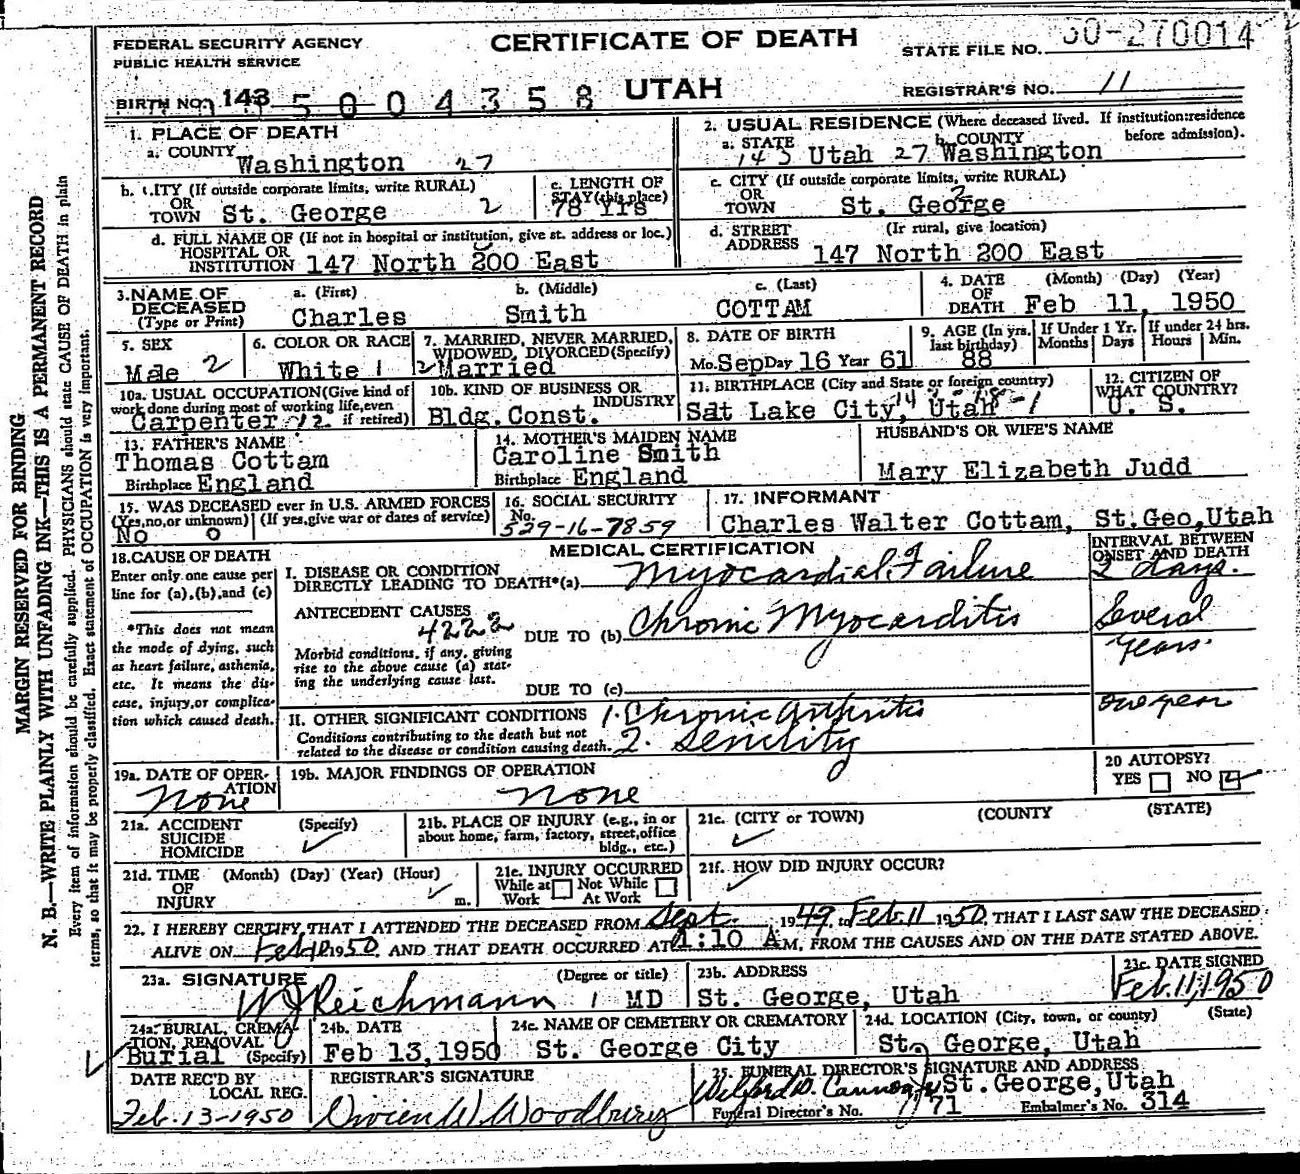 CERTIFICATE OF DEATH
UTAH
FEDERAL SECURITY AGENCY
PUBLIC HEALTH SERVICE
BIRTH NO. 143 5004358
STATE FILE NO. 50-270014
REGISTRAR'S NO. 11
MARGIN RESERVED FOR BINDING
N. B.—WRITE PLAINLY WITH UNFADING INK—THIS IS A PERMANENT RECORD
Every item of information should be carefully supplied. PHYSICIANS should state CAUSE OF DEATH in plain
terms, so that it may be properly classified. Exact statement of OCCUPATION is very important.
1. PLACE OF DEATH
a. COUNTY Washington 27
b. CITY (If outside corporate limits, write RURAL)
OR
TOWN St. George 2
c. LENGTH OF
STAY (this place)
78 Yrs
d. FULL NAME OF (If not in hospital or institution, give st. address or loc.)
HOSPITAL OR
INSTITUTION 147 North 200 East
2. USUAL RESIDENCE (Where deceased lived. If institution: residence
before admission).
a. STATE 143 Utah 27 b. COUNTY Washington
c. CITY (If outside corporate limits, write RURAL)
OR
TOWN St. George 2
d. STREET (If rural, give location)
ADDRESS 147 North 200 East
3. NAME OF DECEASED (Type or Print)
a. (First) Charles
b. (Middle) Smith
c. (Last) COTTAM
4. DATE OF DEATH (Month) (Day) (Year)
Feb 11, 1950
5. SEX
Male 2
6. COLOR OR RACE
White 1
7. MARRIED, NEVER MARRIED,
WIDOWED, DIVORCED (Specify)
2 Married
8. DATE OF BIRTH
Mo. Sep Day 16 Year 61
9. AGE (In yrs. last birthday)
88
If Under 1 Yr. Months Days
If under 24 hrs. Hours Min.
10a. USUAL OCCUPATION (Give kind of
work done during most of working life, even
if retired)
Carpenter 12
10b. KIND OF BUSINESS OR
INDUSTRY
Bldg. Const.
11. BIRTHPLACE (City and State or foreign country)
Salt Lake City, Utah
12. CITIZEN OF
WHAT COUNTRY?
U. S.
13. FATHER'S NAME
Thomas Cottam
Birthplace England
14. MOTHER'S MAIDEN NAME
Caroline Smith
Birthplace England
HUSBAND'S OR WIFE'S NAME
Mary Elizabeth Judd
15. WAS DECEASED ever in U.S. ARMED FORCES
(Yes, no, or unknown) (If yes, give war or dates of service)
No 0
16. SOCIAL SECURITY
No.
529-16-7859
17. INFORMANT
Charles Walter Cottam, St. Geo, Utah
18. CAUSE OF DEATH
Enter only one cause per
line for (a), (b), and (c)
*This does not mean
the mode of dying, such
as heart failure, asthenia,
etc. It means the dis-
ease, injury, or complica-
tion which caused death.
MEDICAL CERTIFICATION
INTERVAL BETWEEN
ONSET AND DEATH
I. DISEASE OR CONDITION
DIRECTLY LEADING TO DEATH*(a) Myocardial Failure 2 days.
ANTECEDENT CAUSES
4222
DUE TO (b) Chronic Myocarditis Several years.
Morbid conditions, if any, giving
rise to the above cause (a) stat-
ing the underlying cause last.
DUE TO (c)
II. OTHER SIGNIFICANT CONDITIONS
Conditions contributing to the death but not
related to the disease or condition causing death.
1. Chronic Arthritis one year
2. Senility
19a. DATE OF OPER-
ATION
None
19b. MAJOR FINDINGS OF OPERATION
None
20 AUTOPSY?
YES NO
21a. ACCIDENT (Specify)
SUICIDE
HOMICIDE
21b. PLACE OF INJURY (e.g., in or
about home, farm, factory, street, office
bldg., etc.)
21c. (CITY or TOWN) (COUNTY (STATE)
21d. TIME (Month) (Day) (Year) (Hour)
OF
INJURY m.
21e. INJURY OCCURRED
While at Work Not While At Work
21f. HOW DID INJURY OCCUR?
22. I HEREBY CERTIFY, THAT I ATTENDED THE DECEASED FROM Sept. 1949, to Feb. 11 1950, THAT I LAST SAW THE DECEASED
ALIVE ON Feb 10, 1950, AND THAT DEATH OCCURRED AT 1:10 A M., FROM THE CAUSES AND ON THE DATE STATED ABOVE.
23a. SIGNATURE (Degree or title)
W J Reichmann MD
23b. ADDRESS
St. George, Utah
23c. DATE SIGNED
Feb. 11, 1950
24a. BURIAL, CREMA-
TION, REMOVAL
Burial (Specify)
24b. DATE
Feb 13, 1950
24c. NAME OF CEMETERY OR CREMATORY
St. George City
24d. LOCATION (City, town, or county) (State)
St. George, Utah
DATE REC'D BY
LOCAL REG.
Feb. 13-1950
REGISTRAR'S SIGNATURE
Vivien W. Woodbury
25. FUNERAL DIRECTOR'S SIGNATURE AND ADDRESS
Wilford W. Cannon St. George, Utah
Funeral Director's No. 71 Embalmer's No. 314